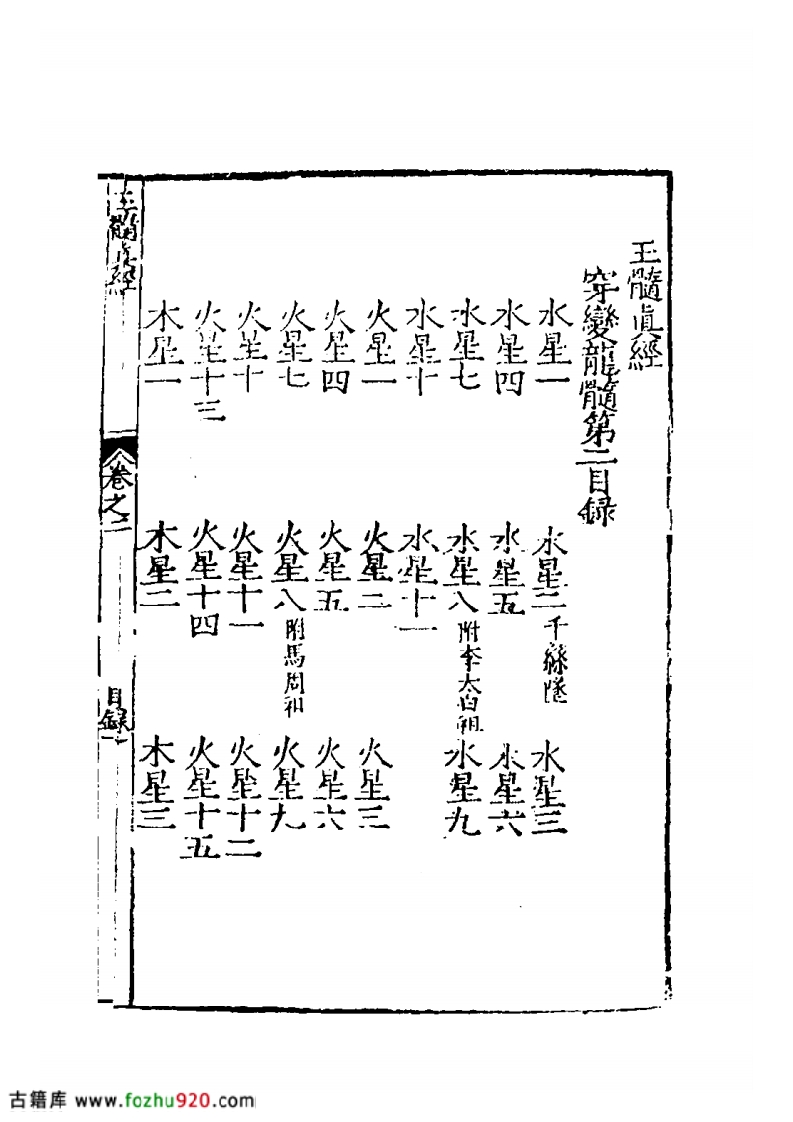 玉髓眞經
穿變龍髓第二目録
水星一 水星二 千絲隧 水星三
水星四 水星五 水星六
水星七 水星八 附李太白祖 水星九
水星十 水星十一
火星一 火星二 火星三
火星四 火星五 火星六
火星七 火星八 附馬周祖 火星九
火星十 火星十一 火星十二
火星十三 火星十四 火星十五
木星一 木星二 木星三
玉髓眞經 卷之二 目録 一
古籍库 www.fozhu920.com